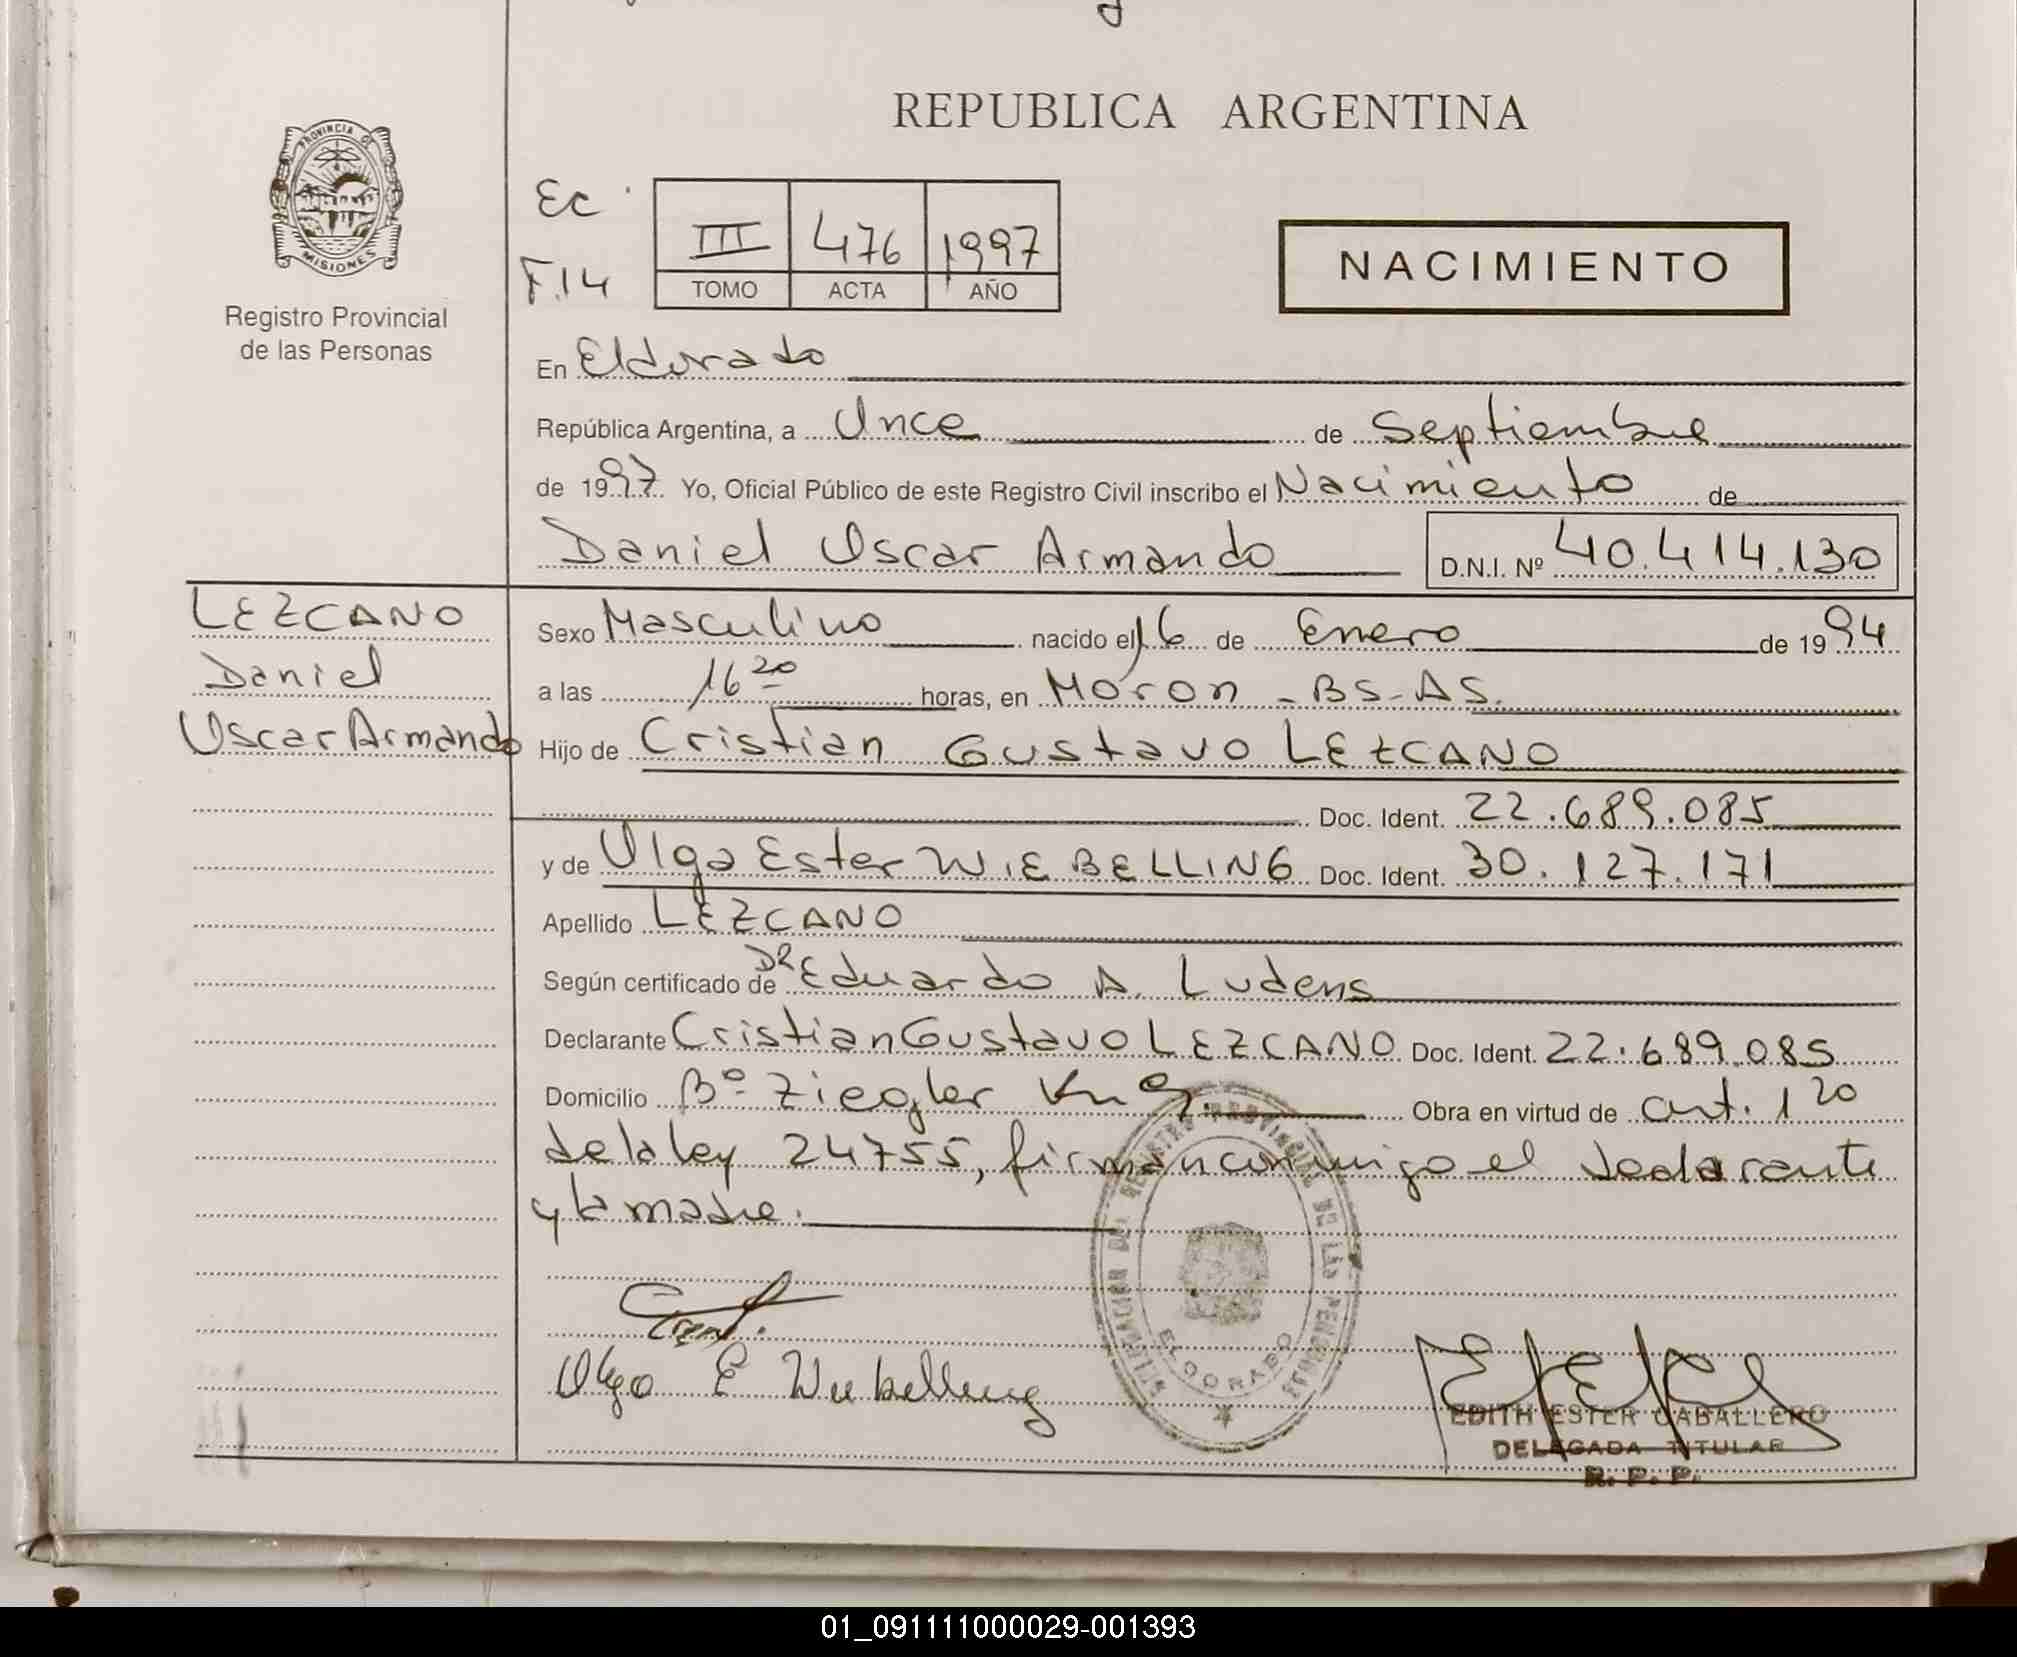 REPUBLICA ARGENTINA
PROVINCIA DE
MISIONES
Registro Provincial
de las Personas
Ec
F.14
III 476 1997
TOMO ACTA AÑO
NACIMIENTO
En Eldorado
República Argentina, a Once de Septiembre
de 1997 Yo, Oficial Público de este Registro Civil inscribo el Nacimiento de
Daniel Oscar Armando D.N.I. Nº 40.414.130
LEZCANO
Daniel
Oscar Armando
Sexo Masculino nacido el 16 de Enero de 1994
a las 16 20 horas, en Moron - BS-AS.
Hijo de Cristian Gustavo LEZCANO
Doc. Ident. 22.689.085
y de Olga Ester WIEBELLING Doc. Ident. 30.127.171
Apellido LEZCANO
Según certificado de DR Eduardo A. Ludens
Declarante Cristian Gustavo LEZCANO Doc. Ident. 22.689.085
Domicilio Bº Ziegler Km 9. Obra en virtud de art. 1 20
de la ley 24755, firman conmigo el declarante
y la madre.
DELEGACION DEL REGISTRO PROVINCIAL DE LAS PERSONAS
ELDORADO
Olga E Wiebelling
EDITH ESTER CABALLERO
DELEGADA TITULAR
R. P. P.
01_091111000029-001393